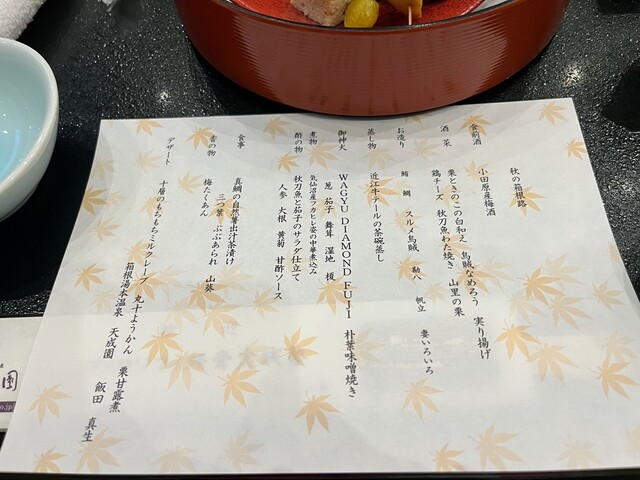 秋の箱根路
食前酒
小田原産梅酒
酒菜
栗ときのこの白和え 烏賊なめろう 実り揚げ
鶏チーズ 秋刀魚わた焼き 山里の栗
お造り
鮪 鯛 スルメ烏賊 勘八 帆立 妻いろいろ
蒸し物
近江牛テールの茶碗蒸し
御神火
WAGYU DIAMOND FUJI 朴葉味噌焼き
葱 茄子 舞茸 湿地 榎
煮物
気仙沼産フカヒレ姿の中華煮込み
酢の物
秋刀魚と茄子のサラダ仕立て
人参 大根 黄菊 甘酢ソース
食事
真鯛の自然薯出汁茶漬け
三つ葉 ぶぶあられ 山葵
香の物
梅たくあん
デザート
十層のもちもちミルクレープ 丸十ようかん 栗甘露煮
箱根湯本温泉 天成園 飯田 真生
園